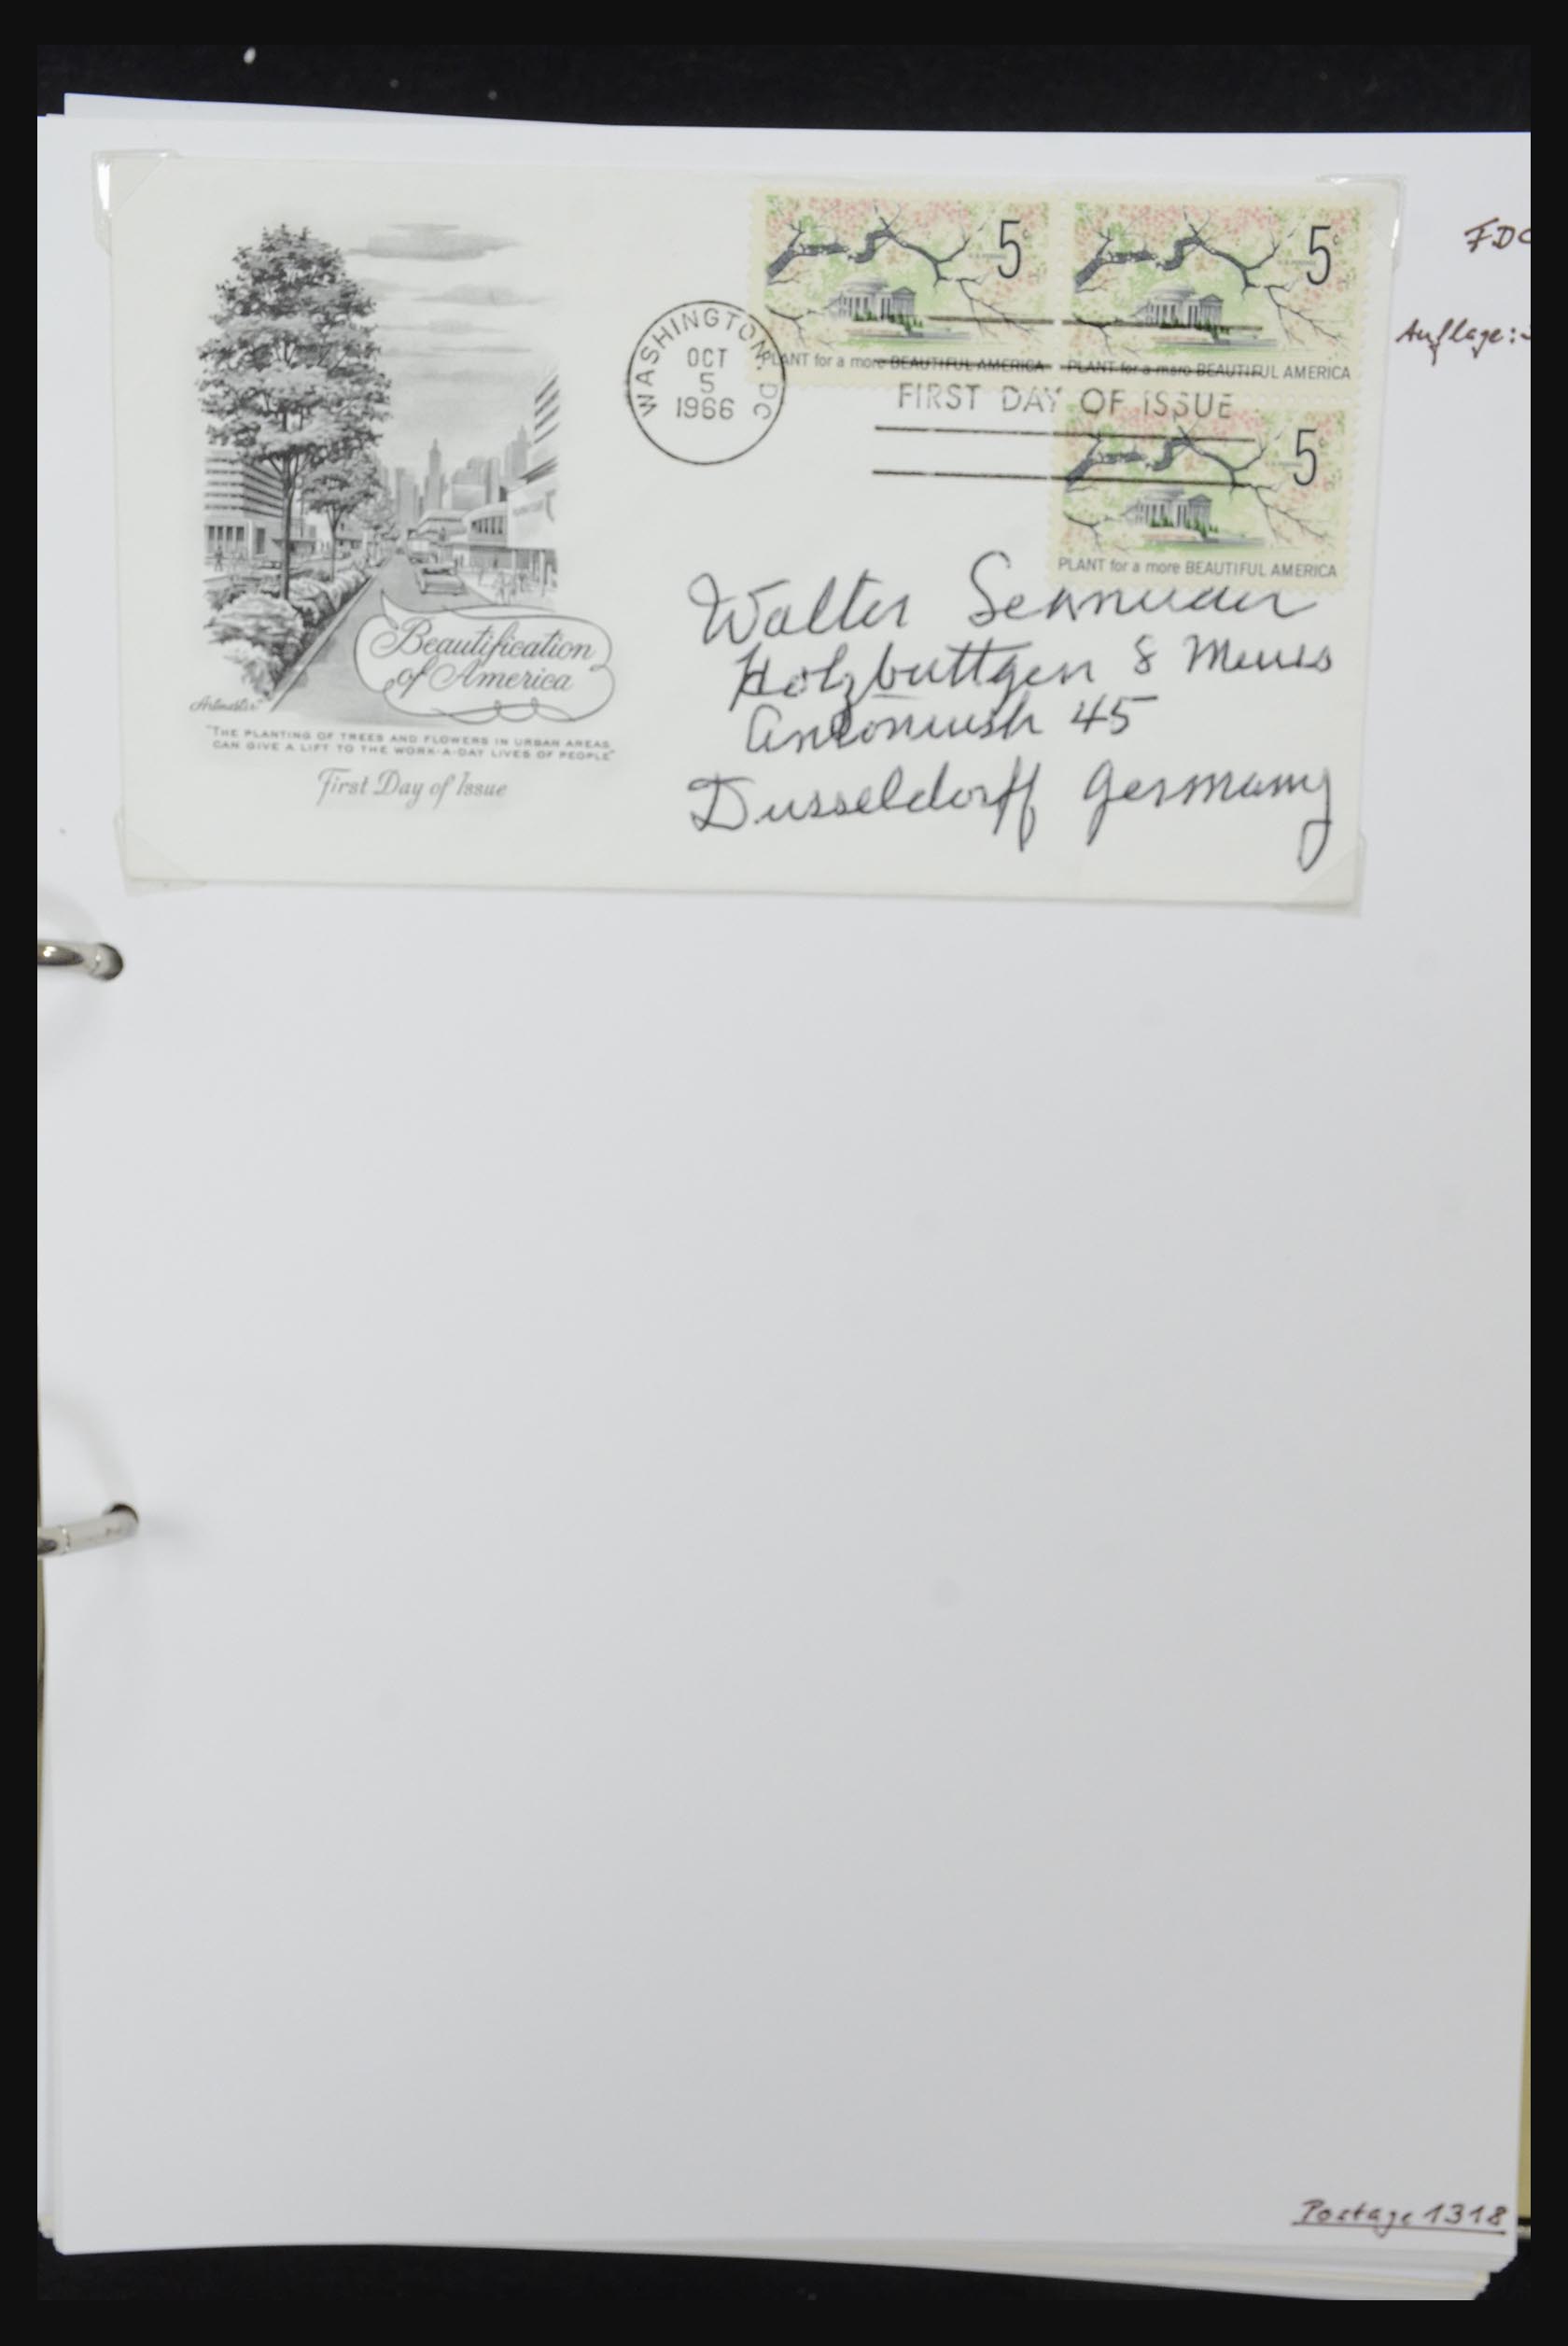 5c
5c
PLANT for a more BEAUTIFUL AMERICA
PLANT for a more BEAUTIFUL AMERICA
WASHINGTON, DC
OCT
5
1966
FIRST DAY OF ISSUE
5c
PLANT for a more BEAUTIFUL AMERICA
Beautification
of America
Artmaster
"THE PLANTING OF TREES AND FLOWERS IN URBAN AREAS
CAN GIVE A LIFT TO THE WORK-A-DAY LIVES OF PEOPLE"
First Day of Issue
Walter
Holzbuttgen 8
45
Dusseldorff Germany
FDC
Auflage:
Postage 1318